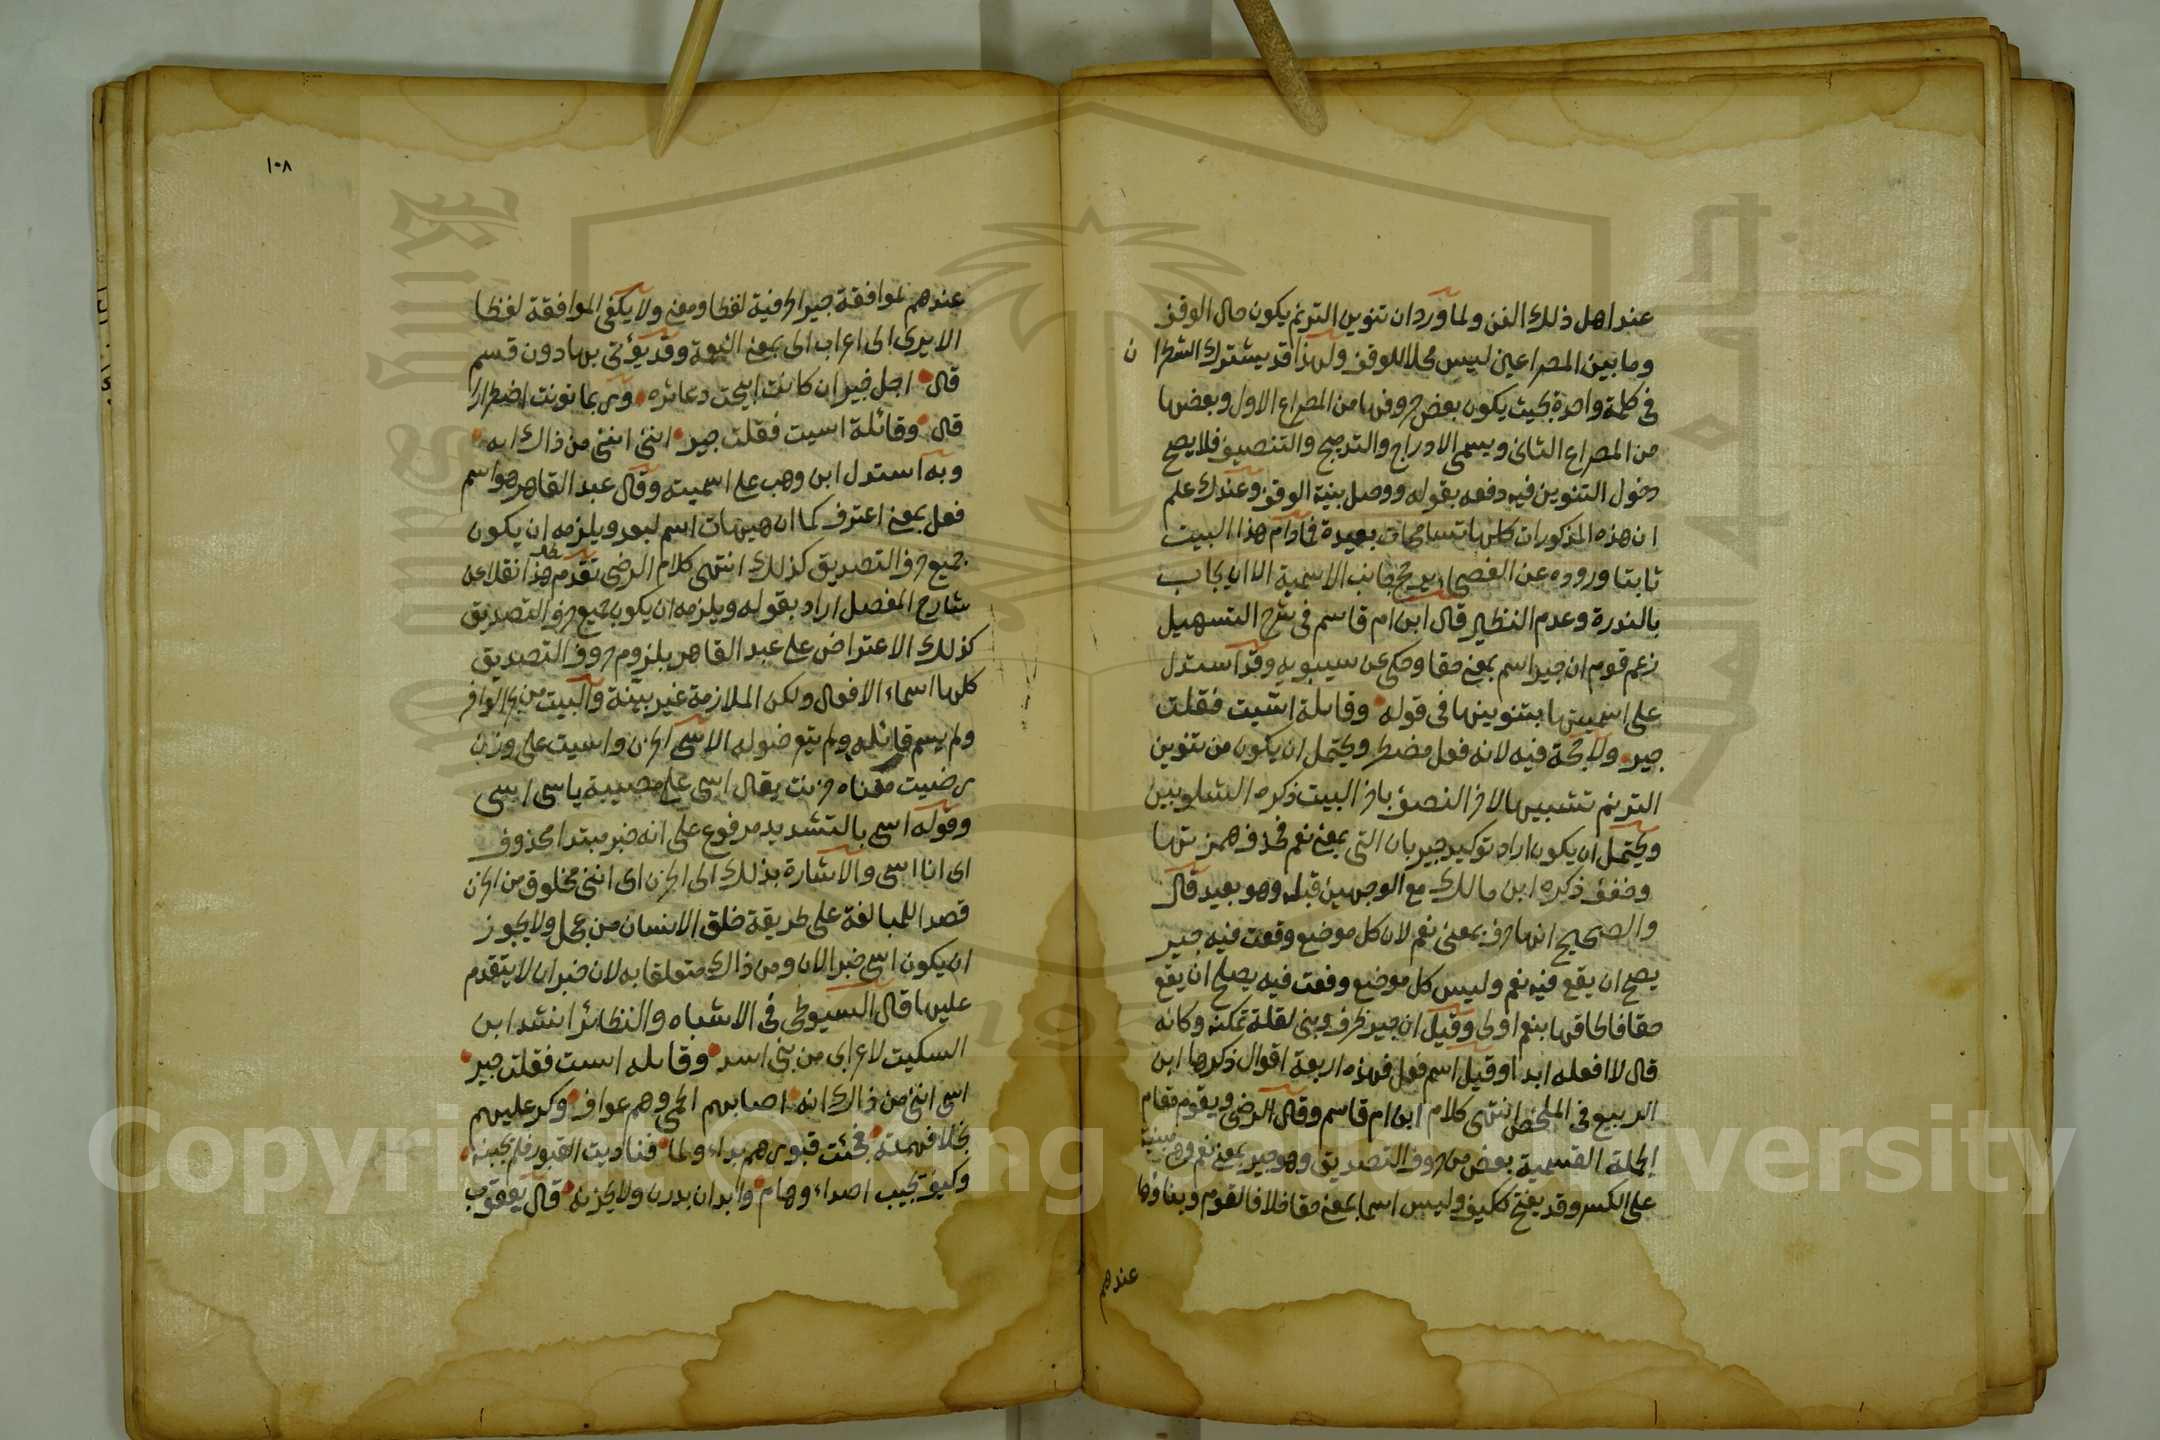 عند اهل ذلك الفن ولما ورد ان تنوين الترنم يكون حال الوقف
وما بين المصراعين ليس محلا للوقف ولهذا قد يشترك الشطران
فى كلمة واحدة بحيث يكون بعض حروفها من المصراع الاول وبعضها
من المصراع الثانى ويسمى الادراج والتدريج والتنصيف فلا يصح
دخول التنوين فيه دفعه بقوله ووصل بنية الوقف وعندك علم
ان هذه المذكورات كلها تسامحات بعيدة فمادام هذا البيت
ثابتا وروده عن الفصحاء يرجح جانب الاسمية الا ان يجاب
بالندرة وعدم النظير قال ابن ام قاسم فى شرح التسهيل
زعم قوم ان جير اسم بمعنى حقا وحكى عن سيبويه وقد استدل
على اسميتها بتنوينها فى قوله وقايلة اسيت فقلت
جير ولا حجة فيه لانه فعل مضطر ويحتمل ان يكون من تنوين
الترنم تشبيها لآخر النصف بآخر البيت ذكره الشلوبين
ويحتمل ان يكون اراد توكيد جير بان التى بمعنى نعم فحذف همزتها
وخفف ذكره ابن مالك مع الوجهين قبله وهو بعيد قال
والصحيح انها حرف بمعنى نعم لان كل موضع وقعت فيه جير
يصح ان يقع فيه نعم وليس كل موضع وقعت فيه يصلح ان يقع
حقا فالحاقها بنعم اولى وقيل ان جير ظرف وبنى لقلة تمكنه وكانه
قال لا افعله ابدا وقيل اسم فعل فهذه اربعة اقوال ذكرها ابن
الربيع فى الملخص انتهى كلام ابن ام قاسم وقال الرضى ويقوم مقام
الجملة القسمية بعض من حروف التصديق وهو جير بمعنى نعم وهى مبنية
على الكسر وقد يفتح ككيف وليس اسما بمعنى حقا خلافا لقوم وبناؤها
عندهم
١٠٨
عندهم لموافقة جير الحرفية لفظا ومعنى ولا يكفى الموافقة لفظا
الا يرى الى اعراب الى بمعنى النعمة وقد يؤتى بها دون قسم
قال اجل جير ان كانت ابيحت دعائره وربما نونت اضطرارا
قال وقائلة اسيت فقلت جير اننى اننى من ذاك انه
وبه استدل ابن وهب على اسميته وقال عبد القاهر هو اسم
فعل بمعنى اعترف كما ان هيهات اسم لبعد ويلزمه ان يكون
جميع حروف التصديق كذلك انتهى كلام الرضى تقدم هذا نقلا عن
شارح المفصل اراد بقوله ويلزمه ان يكون جميع حروف التصديق
كذلك الاعتراض على عبد القاهر بلزوم حروف التصديق
كلها اسماء الافعال ولكن الملازمة غير بينة والبيت من الوافر
ولم يسم قائله ولم يتعرضوا له الاسى الحزن واسيت على وزن
رضيت معناه حزنت يقال اسى على مصيبة ياسى اسى
وقوله اسى بالتشديد مرفوع على انه خبر مبتدا محذوف
اى انا اسى والاشارة بذلك الى الحزن اى اننى مخلوق من الحزن
قصدا للمبالغة على طريقة خلق الانسان من عجل ولا يجوز
ان يكون اسى خبرا لان ومن ذاك متعلقا به لان خبر ان لا يتقدم
عليها قال السيوطى فى الاشباه والنظائر انشد ابن
السكيت لاعرابى من بنى اسد وقايله اسيت فقلت جير
اسى اننى من ذاك انه اصابهم الحمى وهم عواف وكر عليهم
فجئت قبورهم بداء ولما فناديت القبور فلم تجبنه
وكيف تجيب اصداء وهام وابدان بدرن ولا نخزنه قال يعقوب